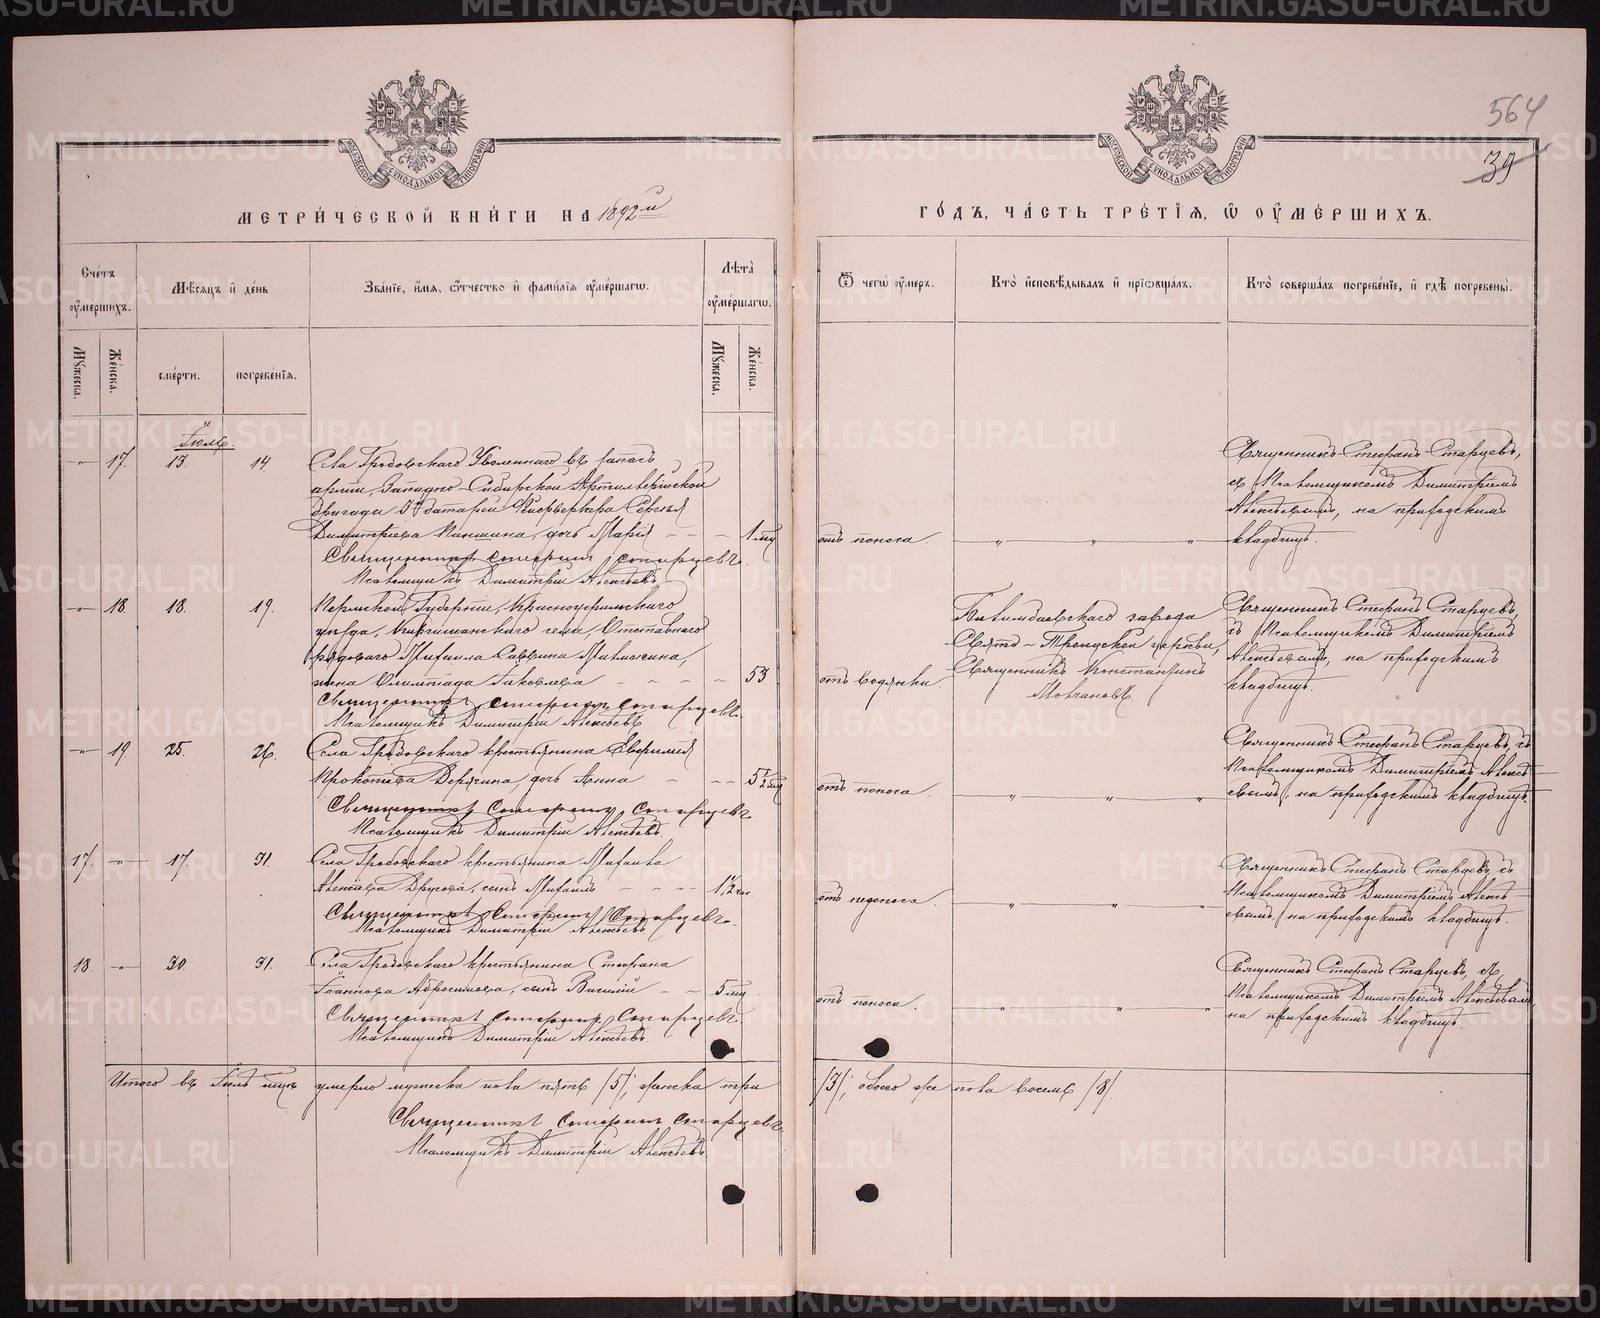 564
39
МЕТРИ́ЧЕСКОЙ КНИ́ГИ НА 1892й
ГО́ДЪ, ЧА́СТЬ ТРЕ́ТІѦ, Ѡ ОУМЕ́РШИХЪ.
Сче́тъ оуме́ршихъ.
Мꙋ́жеска.
Же́нска.
Мѣ́сѧцъ и҆ де́нь
сме́рти.
погребе́нїѧ.
Зва́нїе, и҆́мѧ, ѻ҆́тчество и҆ фами́лїѧ оуме́ршагѡ.
Лѣ́та оуме́ршагѡ.
Мꙋ́жеска.
Же́нска.
Ѿ чегѡ̀ оу́меръ.
Кто̀ и҆сповѣ́дывалъ и҆ прїѡбща́лъ.
Кто̀ соверша́лъ погребе́нїе, и҆ гдѣ̀ погребены̀.
Іюль.
-"- 17. 13. 14
Села Гробовскаго Уволеннаго въ запасъ
арміи, Западно-Сибирской Артиллерійской
бригады батареи Фейерверкера Сергѣя
Димитріева дочь Марія - - - 1 мц
Священникъ Стефанъ Старцевъ.
Псаломщикъ Димитрій Алексѣевъ
отъ поноса. " " "
Священникъ Стефанъ Старцевъ,
съ Псаломщикомъ Димитріемъ
Алексѣевымъ, на приходскомъ
кладбищѣ.
-"- 18 18. 19.
Пермской Губерніи, Красноуфимскаго
уѣзда, Киргишанскаго села, Отставнаго
рядоваго Михаила Саввина
жена Олимпіада Яковлева - - - - 53
Священникъ Стефанъ Старцевъ.
Псаломщикъ Димитрій Алексѣевъ
отъ водянки.
Билимбаевскаго завода
Свято-Троицкой церкви,
Священникъ Константинъ
Священникъ Стефанъ Старцевъ,
съ Псаломщикомъ Димитріемъ
Алексѣевымъ, на приходскомъ
кладбищѣ.
-"- 19 25. 26.
Села Гробовскаго крестьянина Евфимія
Прокопіева дочь Анна - - - 5½ мц
Священникъ Стефанъ Старцевъ.
Псаломщикъ Димитрій Алексѣевъ.
отъ поноса. " " "
Священникъ Стефанъ Старцевъ, съ
Псаломщикомъ Димитріемъ Алексѣ-
евымъ, на приходскомъ кладбищѣ.
17. -"- 17. 31.
Села Гробовскаго крестьянина Михаила
Алексѣева сынъ Михаилъ - - - - 1½ час
Священникъ Стефанъ Старцевъ.
Псаломщикъ Димитрій Алексѣевъ
отъ недоноса. " " "
Священникъ Стефанъ Старцевъ, съ
Псаломщикомъ Димитріемъ Алексѣ-
евымъ, на приходскомъ кладбищѣ.
18. -"- 30. 31.
Села Гробовскаго крестьянина Стефана
Іоаннова Абросимова, сынъ Василій - - 5 мц
Священникъ Стефанъ Старцевъ
Псаломщикъ Димитрій Алексѣевъ.
отъ поноса. " " "
Священникъ Стефанъ Старцевъ, съ
Псаломщикомъ Димитріемъ Алексѣевымъ,
на приходскомъ кладбищѣ.
Итого въ Іюлѣ мцѣ умерло мужеска пола пять /5/, женска три /3/; обоего же пола восемь /8/.
Священникъ Стефанъ Старцевъ
Псаломщикъ Димитрій Алексѣевъ
METRIKI.GASO-URAL.RU